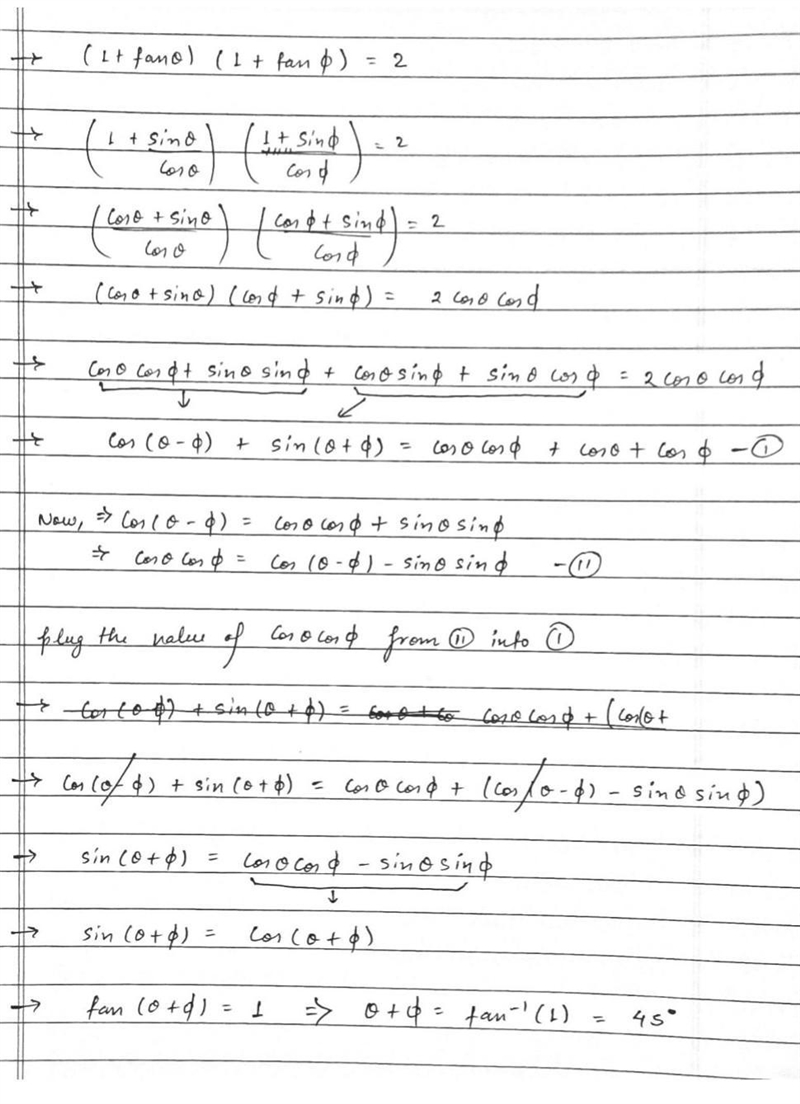 → (1 + tanθ) (1 + tan ϕ) = 2
→ (1 + sinθ/cosθ) (1 + sinϕ/cosϕ) = 2
→ (cosθ + sinθ/cosθ) (cosϕ + sinϕ/cosϕ) = 2
→ (cosθ + sinθ) (cosϕ + sinϕ) = 2 cosθ cosϕ
→ cosθ cosϕ + sinθ sinϕ + cosθ sinϕ + sinθ cosϕ = 2 cosθ cosϕ
→ cos(θ - ϕ) + sin(θ + ϕ) = cosθ cosϕ + cosθ + cosϕ - ①
Now, ⇒ cos(θ - ϕ) = cosθ cosϕ + sinθ sinϕ
⇒ cosθ cosϕ = cos(θ - ϕ) - sinθ sinϕ - ⑪
plug the value of cosθ cosϕ from ⑪ into ①
→ cos(θ-ϕ) + sin(θ + ϕ) = cosθ + co cosθ cosϕ + (cos(θ+
→ cos(θ - ϕ) + sin(θ + ϕ) = cosθ cosϕ + (cos(θ - ϕ) - sinθ sinϕ)
→ sin(θ + ϕ) = cosθ cosϕ - sinθ sinϕ
→ sin(θ + ϕ) = cos(θ + ϕ)
→ tan(θ + ϕ) = 1 ⇒ θ + ϕ = tan⁻¹(1) = 45°